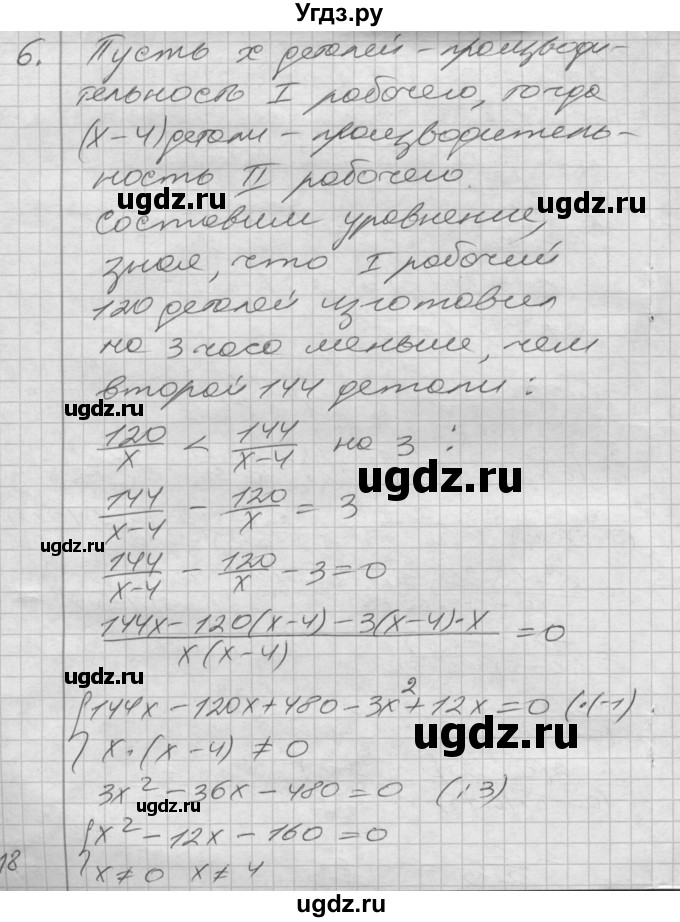 Угдз.ру
6. Пусть x деталей – производи-
тельность I рабочего, тогда
(x-4) детали – производитель-
ность II рабочего
ugdz.ru
ugdz.ru
составим уравнение,
зная, что I рабочий
120 деталей изготовил
на 3 часа меньше, чем
второй 144 детали:
ugdz.ru
120/x < 144/(x-4) на 3 :
ugdz.ru
144/(x-4) - 120/x = 3
ugdz.ru
144/(x-4) - 120/x - 3 = 0
(144x - 120(x-4) - 3(x-4)·x)/(x(x-4)) = 0
ugdz.ru
{144x - 120x + 480 - 3x² + 12x = 0 (·(-1)
ugdz.ru
x·(x-4) ≠ 0
3x² - 36x - 480 = 0 (:3)
ugdz.ru
{x² - 12x - 160 = 0
ugdz.ru
18
x ≠ 0 x ≠ 4
ugdz.ru